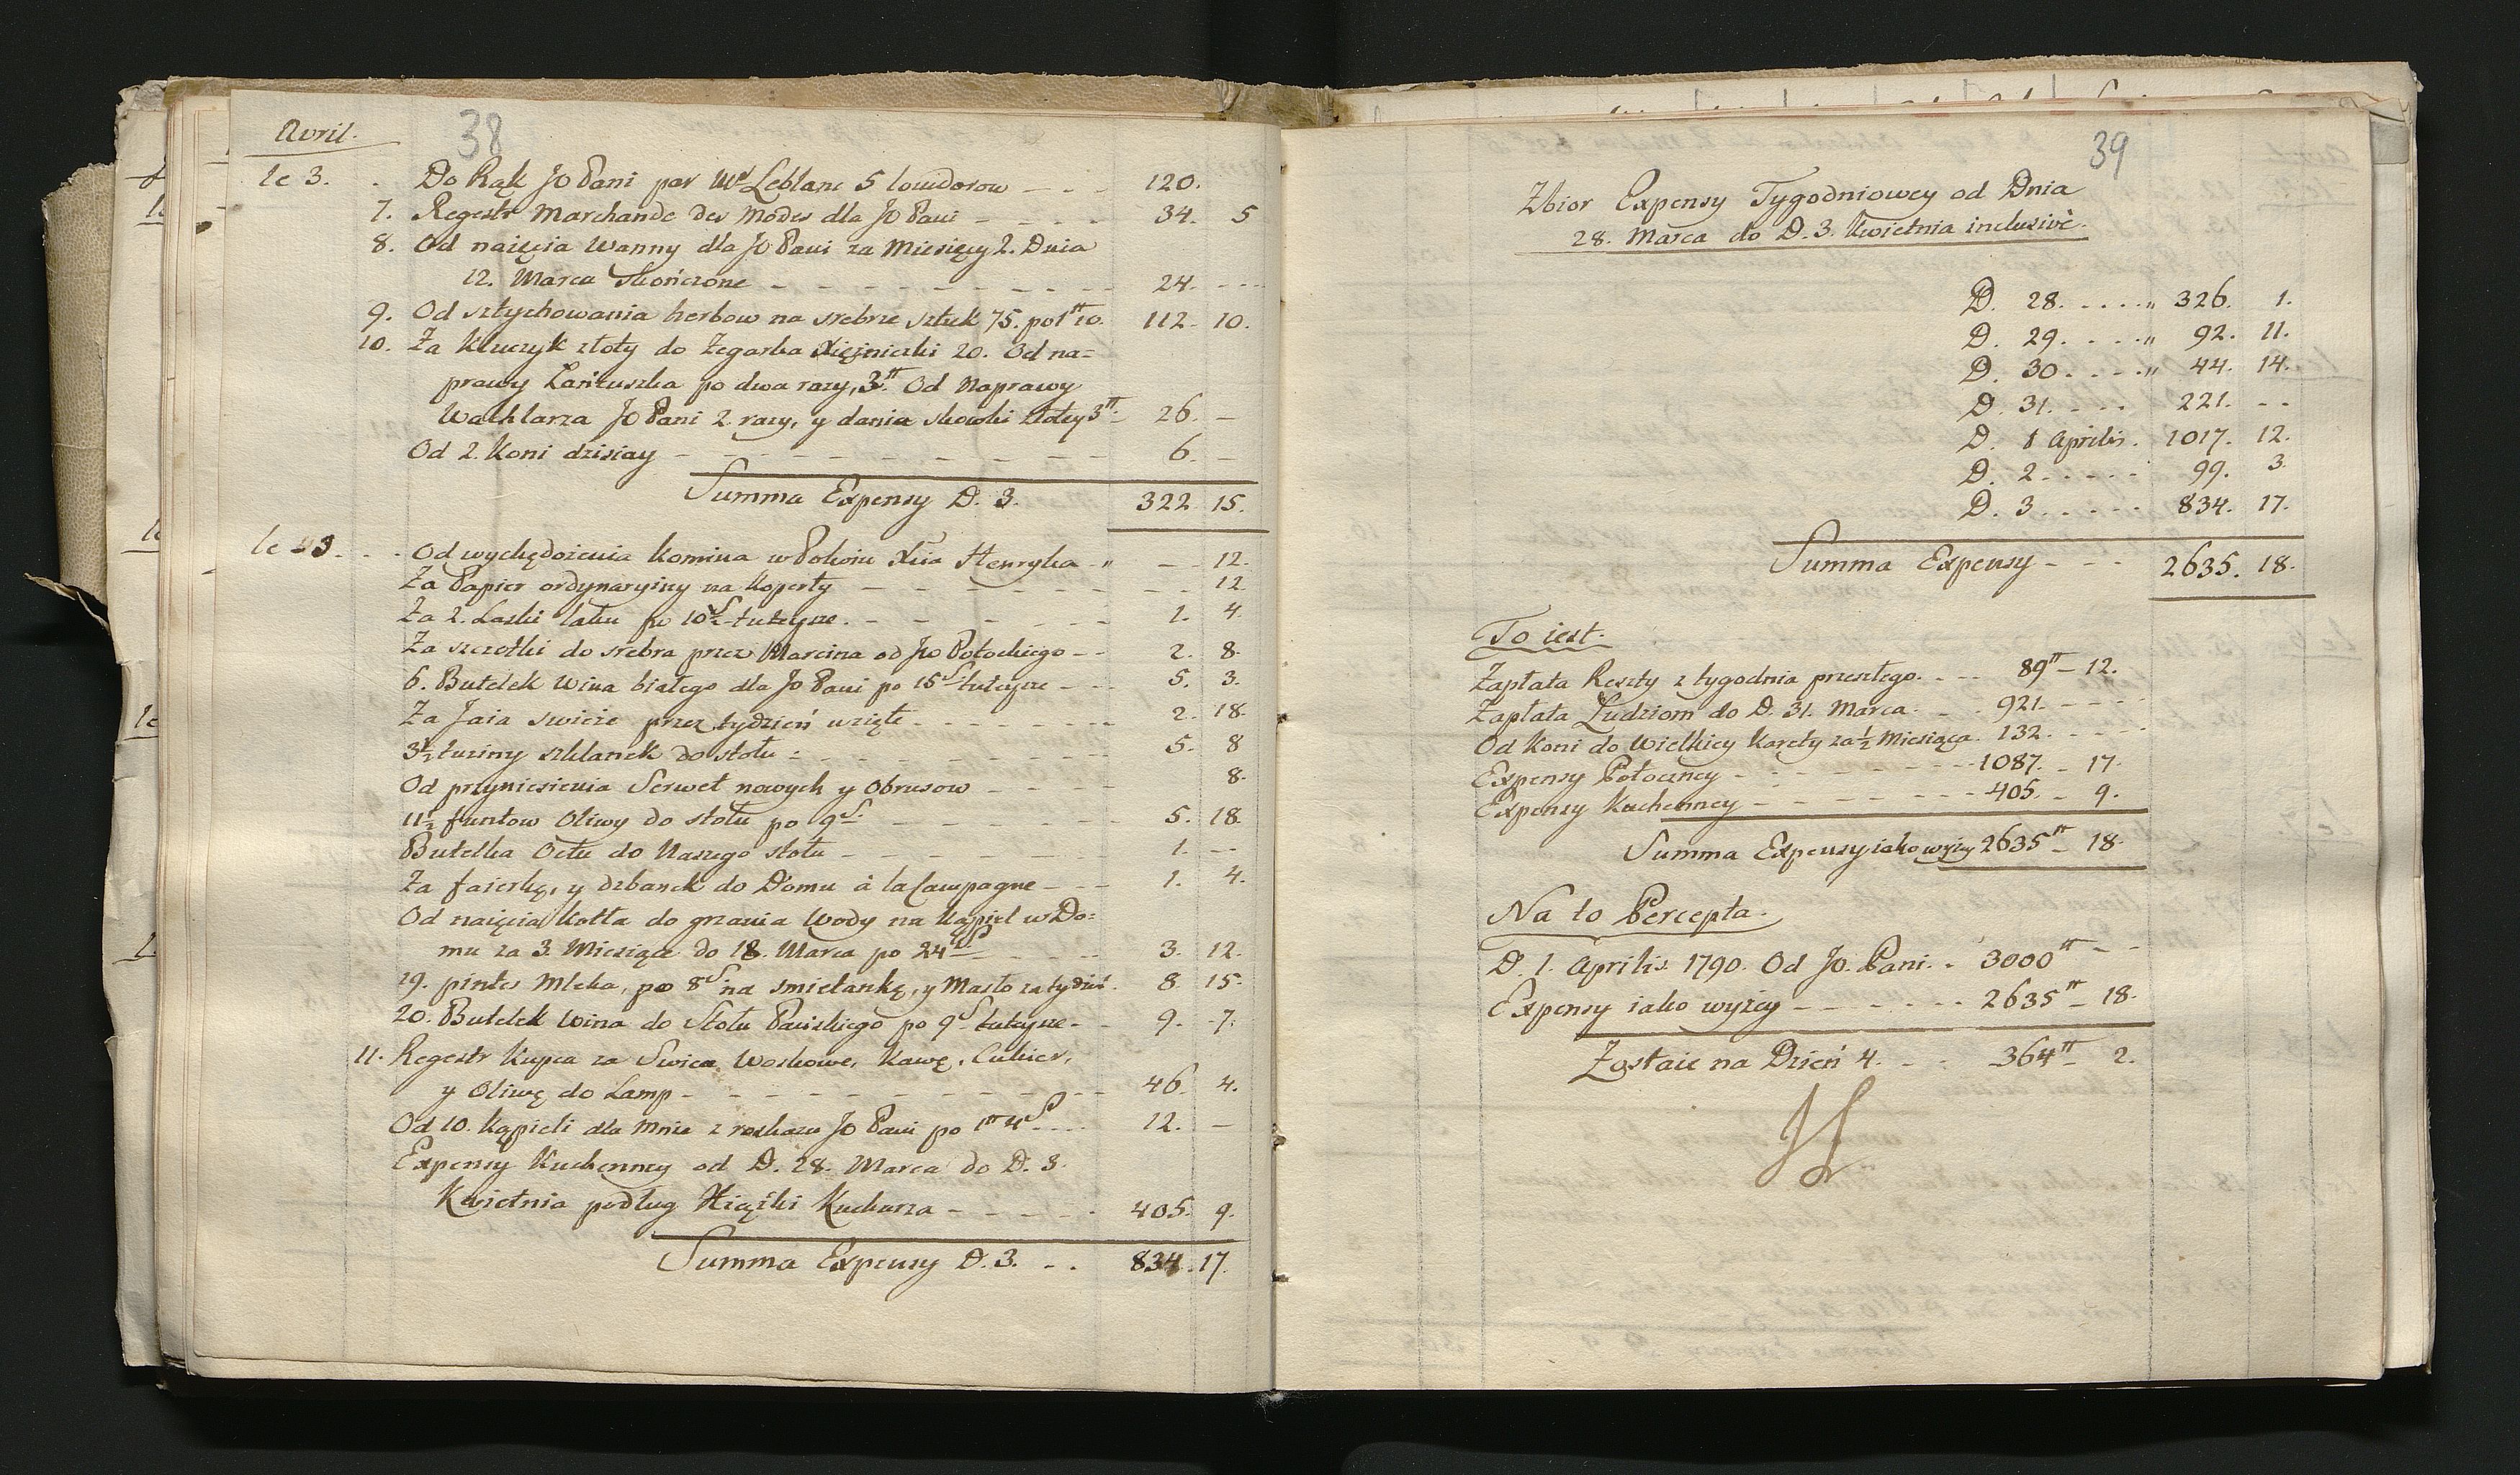 Avril.
38
le 3. . Do Rąk JO Pani par Mr Leblanc 5 louidorow - - - 120.
7. Regestr Marchande des Modes dla JO Pani - - - - 34. 5
8. Od naięcia Wanny dla JO Pani za Miesięcy 2. Dnia
12. Marca skończone - - - - - - - - - 24. - - -
9. Od sztychowania herbow na srebrze sztuk 75. po 1 tt 10. 112. 10.
10. Za Kluczyk złoty do Zegarka Xiężniczki 20. Od na=
prawy Łańcuszka po dwa razy, 3. tt Od Naprawy
Wachlarza JO Pani 2. razy, y dania skowki złotey 3 tt - 26. -
Od 2. Koni dzisiay - - - - - - - - - - 6. -
Summa Expensy D. 3. 322. 15.
le 3. . . Od wychędożenia komina w Pokoiu Xcia Henryka - " - - 12.
Za Papier ordynaryiny na Koperty - - - - - - - - 12
Za 2. Laski laku po 10 S½ tuteysze. - - - - - - 1. 4.
Za szczotki do srebra przez Marcina od JW Potockiego - - 2. 8.
6. Butelek Wina białego dla JO Pani po 15 S tuteysze - - - 5. 3.
Za Jaia swieże przez tydzień wzięte - - - - - - - 2. 18.
3½ tuziny szklanek do stołu - - - - - - - - - 5. 8
Od przyniesienia Serwet nowych y Obrusow - - - - 8.
11½ funtow Oliwy do stołu po 9 S. - - - - - - - 5. 18.
Butelka Octu do Naszego stołu - - - - - - - 1. - -
Za faierkę, y dzbanek do Domu à la Campagne - - - 1. 4.
Od naięcia Kotła do grzania Wody na Kąpiel w Do=
mu za 3. Miesiące do 18. Marca po 24 S - - - - - 3. 12.
19. pintes Mleka, po 8 S na smietankę, y Masło za tydzień. 8. 15.
20. Butelek Wina do Stołu Pańskiego po 9 S tuteysze - - 9. 7.
11. Regestr Kupca za Swiece Woskowe, Kawę, Cukier,
y Oliwę do Lamp - - - - - - - - - - 46. 4.
Od 10. Kąpieli dla mnie z roskazu JO Pani po 1 tt 4 S. - - - 12. -
Expensy Kuchenney od D. 28. Marca do D. 3.
Kwietnia podług Xiąźki Kucharza - - - - - 405. 9.
Summa Expensy D. 3. - - 834. 17.
39
Zbior Expensy Tygodniowey od Dnia
28. Marca do D. 3. Kwietnia inclusivè.
D. 28. - - - - " 326. 1.
D. 29. - - - " 92. 11.
D. 30 - - - - " 44. 14.
D. 31. - - - 221. - -
D. 1 Aprilis. 1017. 12.
D. 2 - - - - - 99. 3.
D. 3 - - - - - 834. 17.
Summa Expensy - - - 2635. 18.
To iest.
Zapłata Reszty z tygodnia przeszłego. - - - 89 tt - 12.
Zapłata Ludziom do D. 31. Marca. - - 921. - - -
Od Koni do Wielkiey Karety za ½ Miesiąca. 132. - - - -
Expensy Potoczney - - - - - - - 1087. - 17.
Expensy Kuchenney - - - - - - - 405. - 9.
Summa Expensy iako wyżey 2635 tt - 18.
Na to Percepta.
D. 1. Aprilis. 1790. Od JO. Pani. - 3000 tt - -
Expensy iako wyżey - - - - - - 2635 tt - 18.
Zostaie na Dzień 4. - - 364 tt - 2.